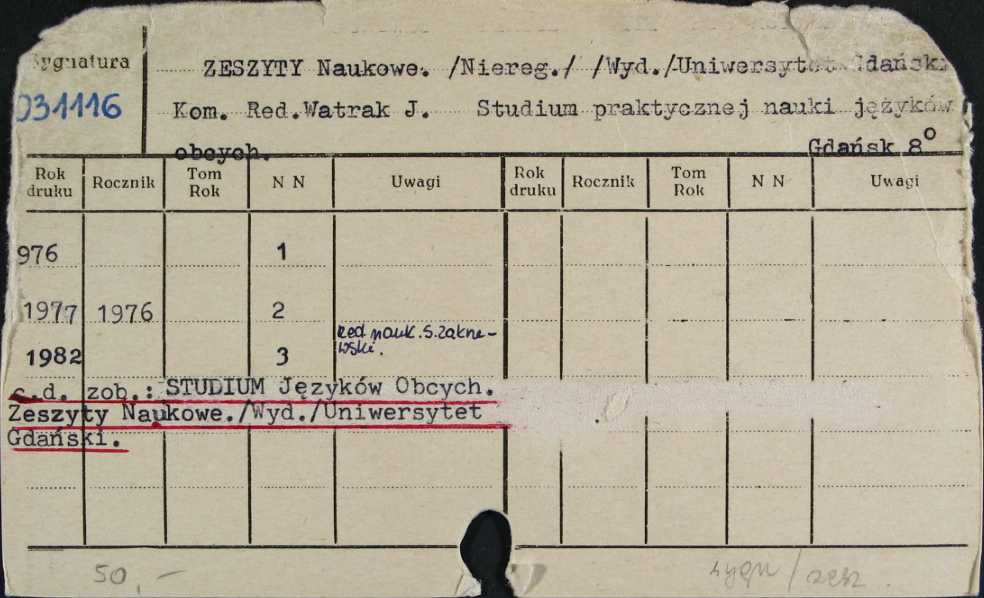 Sygnatura
ZESZYTY Naukowe. /Niereg./ /Wyd./Uniwersytet Gdański
031116
Kom. Red.Watrak J. Studium praktycznej nauki języków
obcych. Gdańsk 8°
Rok druku Rocznik Tom Rok N N Uwagi Rok druku Rocznik Tom Rok N N Uwagi
976 1
1977 1976 2
red nauk. S. Zakne-
wski.
1982 3
c.d. zob.: STUDIUM Języków Obcych.
Zeszyty Naukowe./Wyd./Uniwersytet
Gdański.
50,-
sygn / zesz.